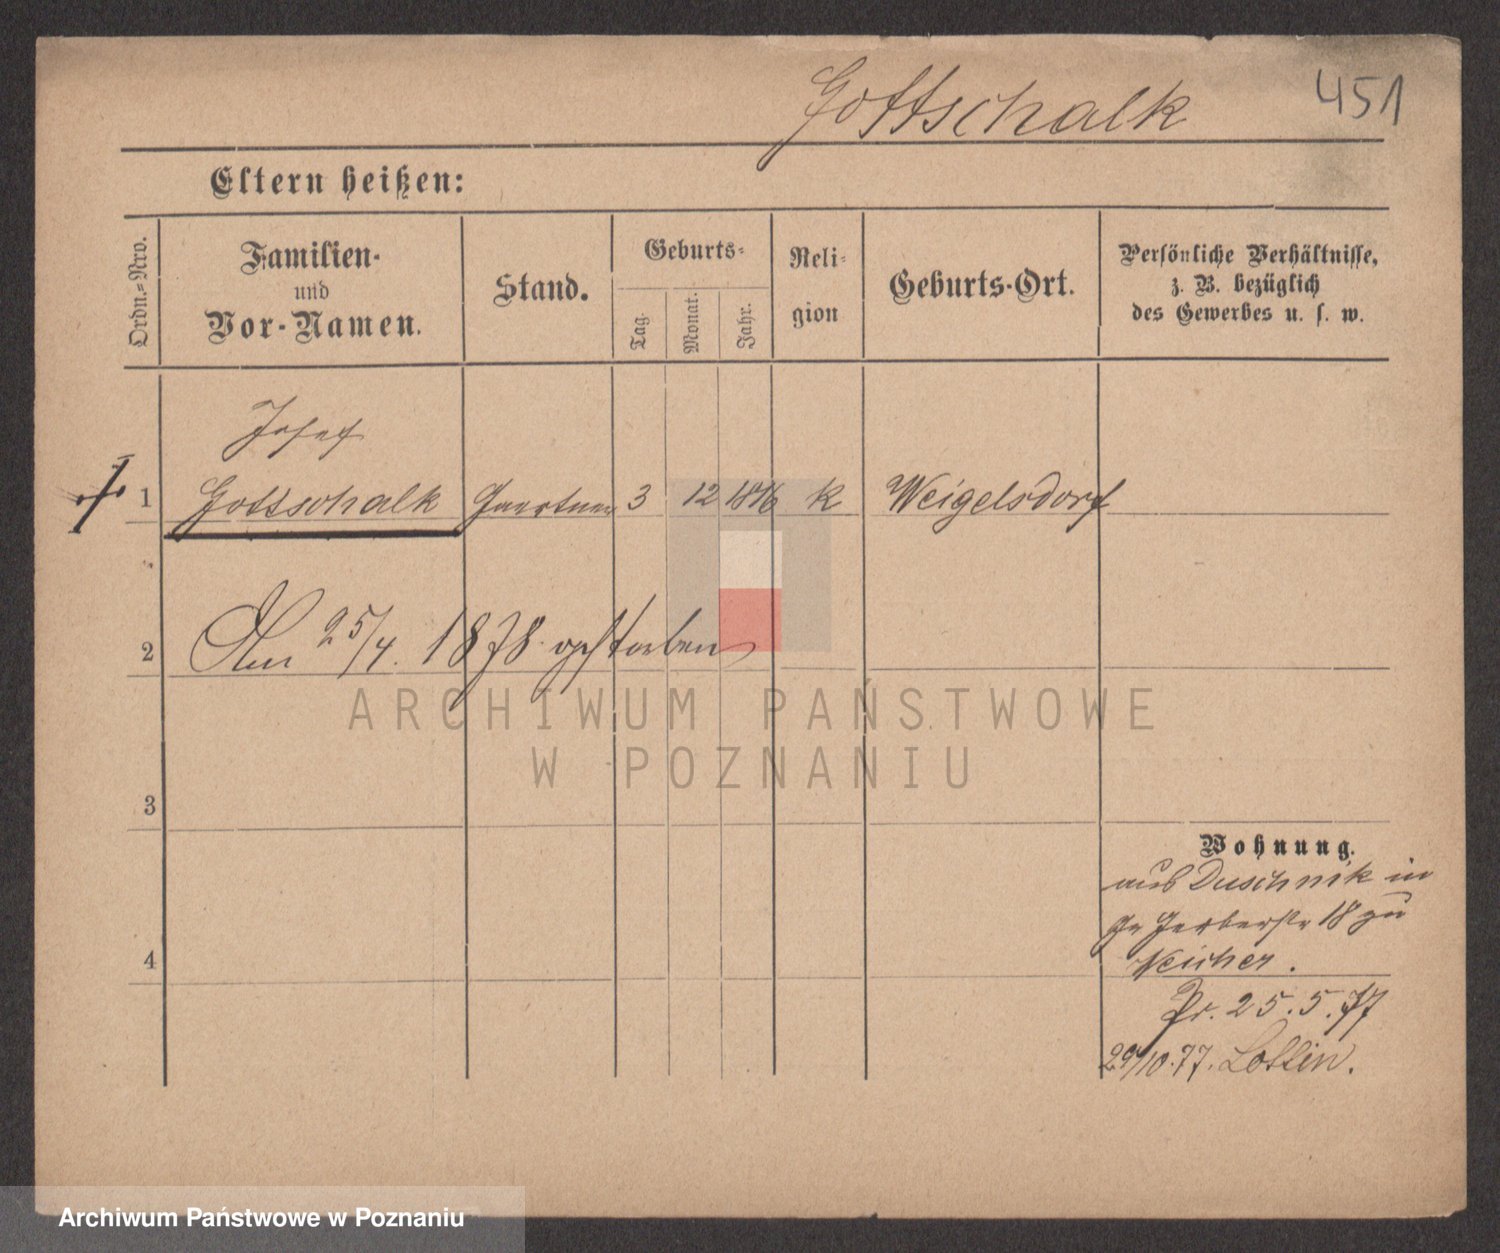 Gottschalk
451
Eltern heißen:
Ordn.-Nro.
Familien-
und
Vor-Namen.
Stand.
Geburts-
Tag.
Monat.
Jahr.
Reli-
gion
Geburts-Ort.
Persönliche Verhältnisse,
z. B. bezüglich
des Gewerbes u. s. w.
Josef
1 Gottschalk Gaertner 3 12 K Weigelsdorf
2 Am 25/4. 1878 gestorben
3
4
Wohnung.
aus Duschnik in
Gr Gerberstr 18 zu
Pr. 25.5.77
29/10.77.
ARCHIWUM PAŃSTWOWE
W POZNANIU
Archiwum Państwowe w Poznaniu